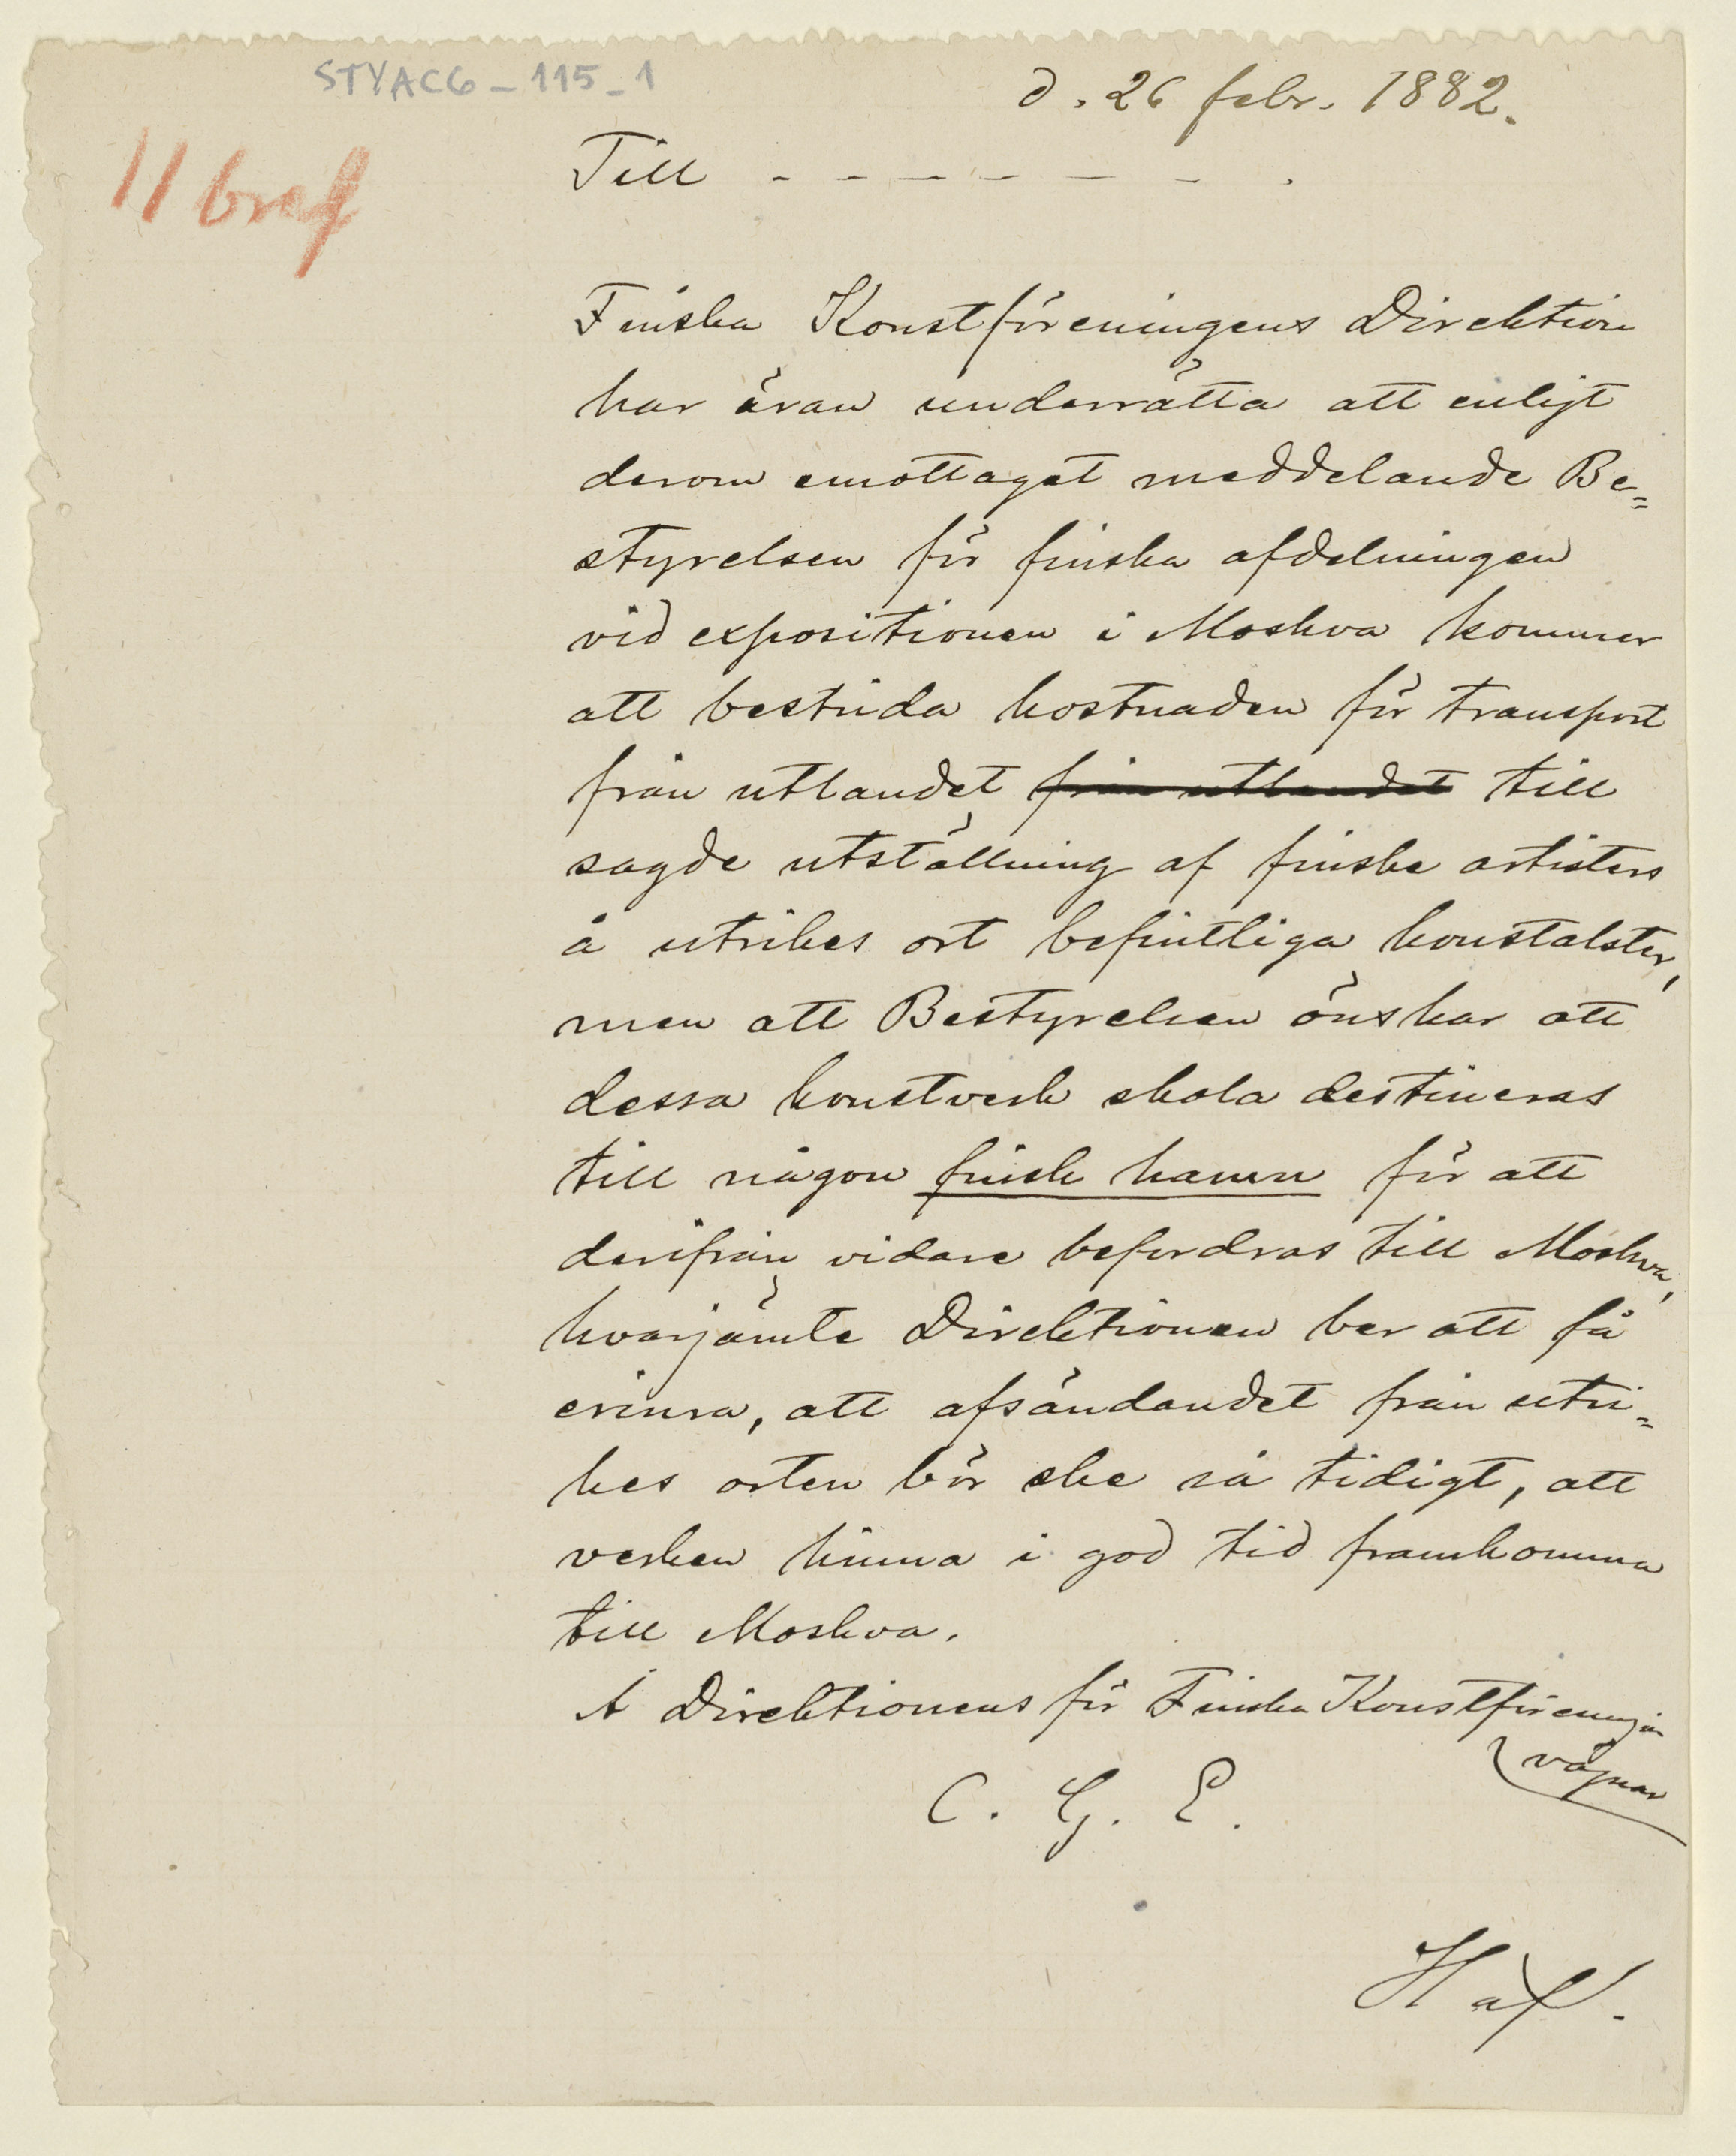 STYAC6 – 115 – 1
d. 26 febr. 1882.
11 bref
Till - - - - - - .
Finska Konstföreningens Direktion
har äran underrätta att enligt
derom emottaget meddelande Be=
styrelsen för finska afdelningen
vid expositionen i Moskva kommer
att bestrida kostnaden för transport
från utlandet från utlandet till
sagde utställning af finske artisters
å utrikes ort befintliga konstalster,
men att Bestyrelsen önskar att
dessa konstverk skola destineras
till någon finsk hamn för att
derifrån vidare befordras till Moskva,
hvarjämte Direktionen ber att få
erinra, att afsändandet från utri=
kes orten bör ske så tidigt, att
verken hinna i god tid framkomma
till Moskva.
Å Direktionens för Finska Konstföreningen
vägnar
C. G. E.